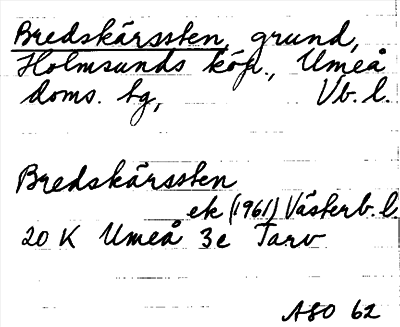 Bredskärssten, grund,
Holmsunds köp., Umeå
doms. tg, Vb. l.
Bredskärssten
ek (1961) Västerb. l.
20 K Umeå 3e Tarv
ASO 62